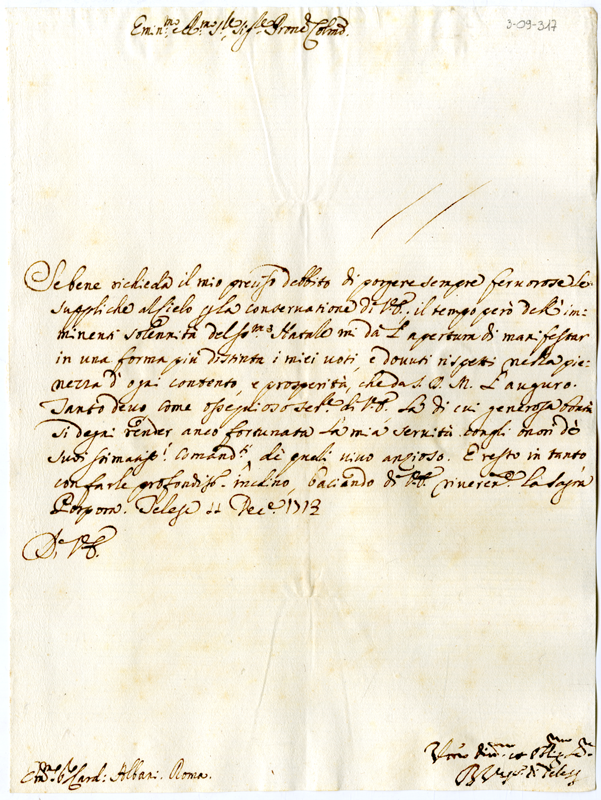 3-09-317
Emin.mo e R.mo Sig.re Sig.re Prone Colmo.
Se bene richieda il mio preciso debbito di porgere sempre fervorose le
suppliche al Cielo p la conservatione di V.E. il tempo però dell' im-
minenti solennità del Ss.mo Natale mi dà l'apertura di manifestar
in una forma più distinta i miei voti, e dovuti rispetti nella pie-
nezza d'ogni contento, e prosperità, che da S. D. M. l'auguro.
Tanto devo come ossequioso ser.e di V.E. la di cui generosa bontà
si degni render anco fortunata la mia servitù cogli onori de
suoi stimatiss.i Comand.ti de quali vivo ansioso. E resto in tanto
con farle profondiss.o inchino, baciando di V.E. riverente la sagra
Porpora. Telese 11 Dec.e 1713
Di V.E.
Em.o S.r Card: Albani. Roma.
Vescº. di Telese